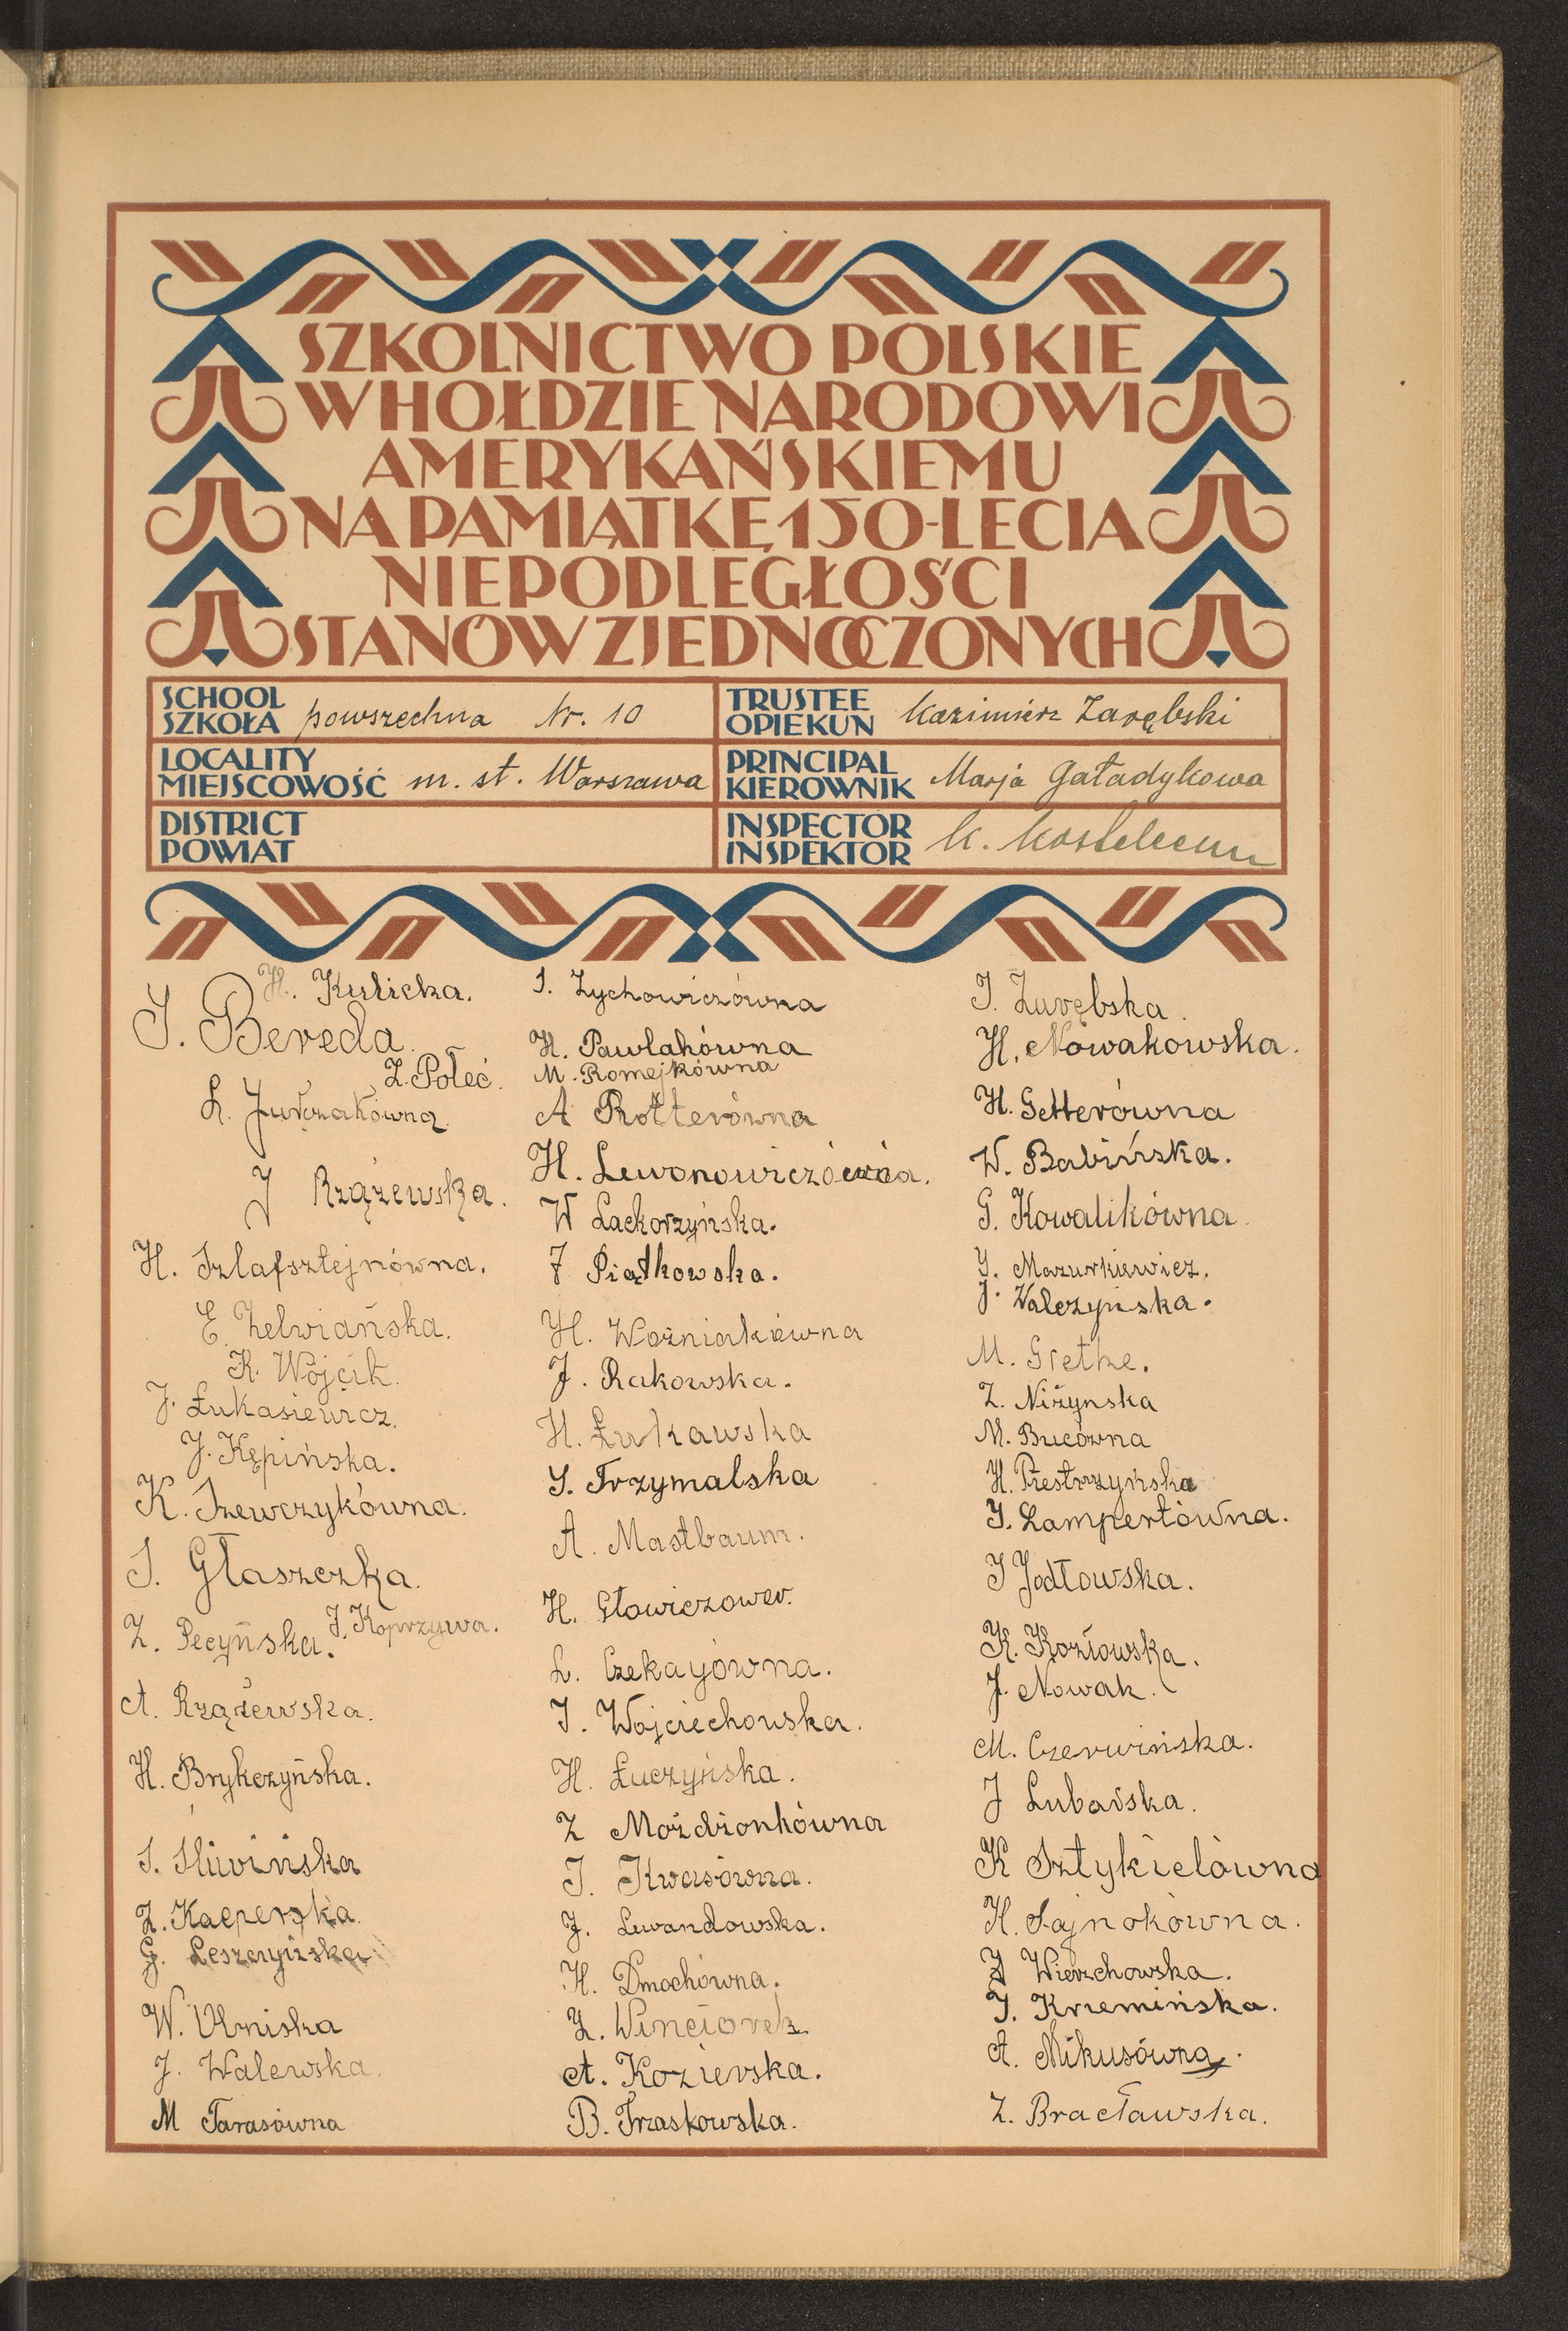 SZKOLNICTWO POLSKIE
W HOŁDZIE NARODOWI
AMERYKAŃSKIEMU
NA PAMIĄTKĘ 150-LECIA
NIEPODLEGŁOŚCI
STANÓW ZJEDNOCZONYCH
SCHOOL
SZKOŁA powszechna Nr. 10
TRUSTEE
OPIEKUN Kazimierz Zarębski
LOCALITY
MIEJSCOWOŚĆ m. st. Warszawa
PRINCIPAL
KIEROWNIK Marja Gaładykowa
DISTRICT
POWIAT
INSPECTOR
INSPEKTOR K.
H. Kulicka.
J. Bereda.
Z. Połeć.
L. Jurczakówna
J Rzążewska.
H. Szlafsztejnówna.
E. Zelwiańska.
K. Wójcik.
J. Łukasiewicz.
J. Kępińska.
K. Szewczykówna.
S. Głaszczka.
J. Koprzywa.
Z. Pecyńska.
A. Rzążewska.
H. Brykczyńska.
S. Śliwińska
Z. Kacperska.
G. Leszczyńska
W.
J. Walewska.
M Tarasówna
I. Zychowiczówna
H. Pawlakówna
M. Romejkówna
A Rotterówna
H. Lewonowiczówna.
W Lackorzyńska.
F Piątkowska.
H. Woźniakówna
J. Rakowska.
H. Łukawska
S. Trzymalska
A. Mastbaum.
H.
L. Czekayówna.
I. Wojciechowska.
H. Łuczyńska.
Z Moździonkówna
I. Kwasówna.
J. Lewandowska.
H. Dmochówna.
Z. Winciorek.
A. Kozierska.
B. Trzaskowska.
I. Zarębska.
H. Nowakowska.
H. Getterówna
W. Babińska.
G. Kowalikówna.
Y. Mazurkiewicz.
J. Walczyńska.
M. Gretke.
Z. Niżynska
M. Bucówna
H. Przestrzyńska
J. Lampertówna.
J Jodłowska.
K. Kozłowska.
J. Nowak.
M. Czerwińska.
J Lubańska.
K Sztykielówna
H. Sajnokówna.
J Wierzchowska.
J. Krzemińska.
A. Mikusówna.
Z. Bracławska.